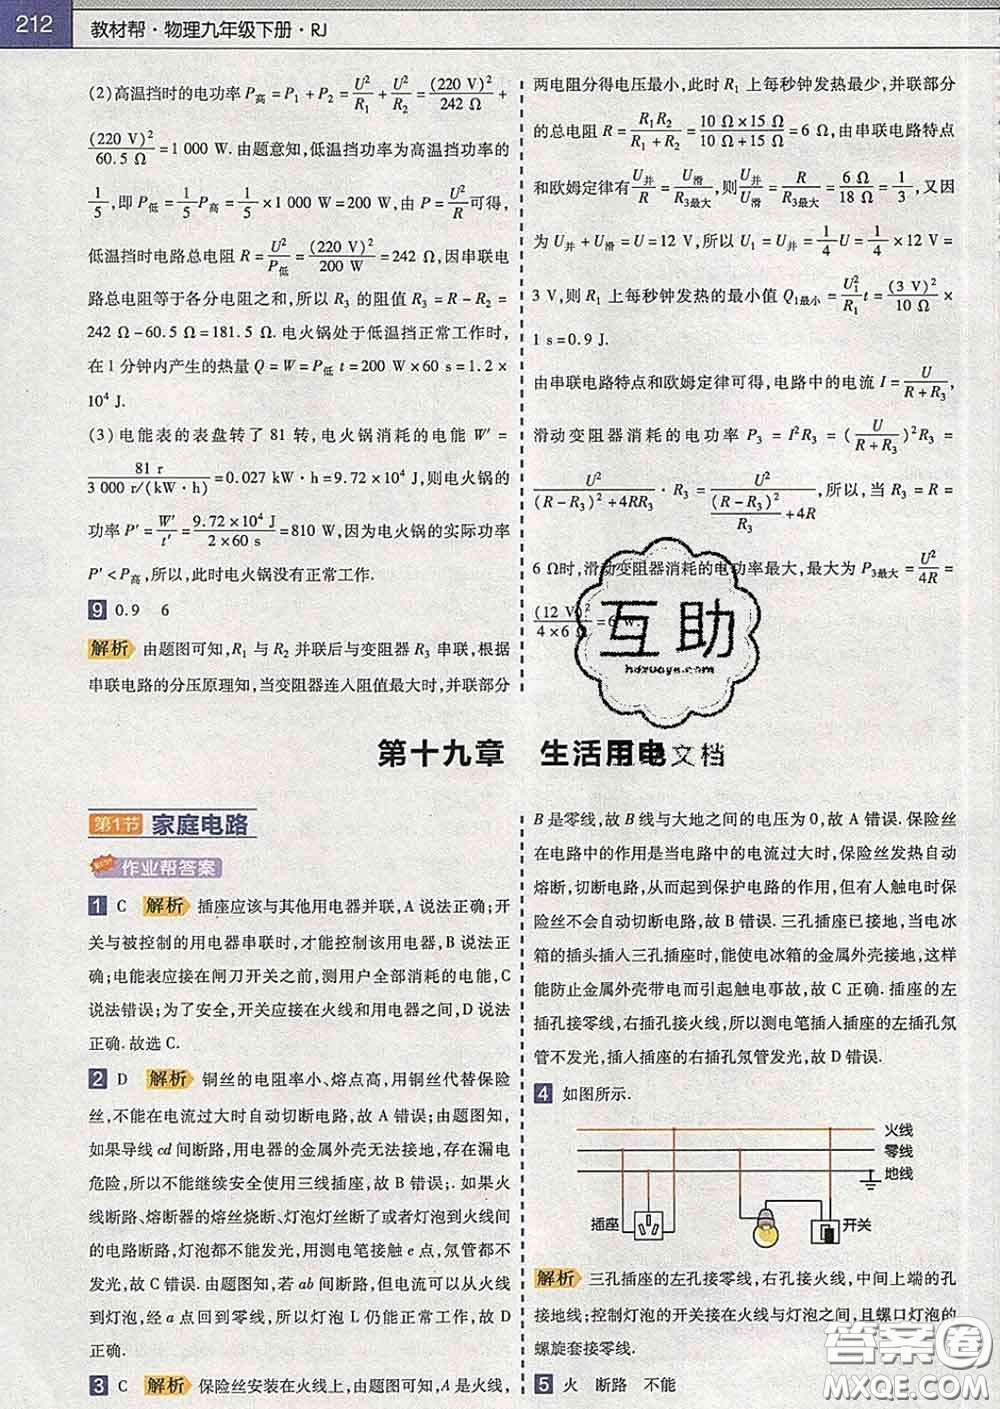 212 教材帮·物理九年级下册·RJ
(2)高温挡时的电功率 P高 = P₁ + P₂ = U²/R₁ + U²/R₂ = (220 V)²/242 Ω +
(220 V)²/60.5 Ω = 1 000 W. 由题意知,低温挡功率为高温挡功率的
1/5,即 P低 = 1/5 P高 = 1/5 × 1 000 W = 200 W,由 P = U²/R 可得,
低温挡时电路总电阻 R = U²/P低 = (220 V)²/200 W = 242 Ω,因串联电
路总电阻等于各分电阻之和,所以 R₃ 的阻值 R₃ = R - R₂ =
242 Ω - 60.5 Ω = 181.5 Ω. 电火锅处于低温挡正常工作时,
在 1 分钟内产生的热量 Q = W = P低 t = 200 W × 60 s = 1.2 ×
10⁴ J.
(3) 电能表的表盘转了 81 转,电火锅消耗的电能 W′ =
81 r/3 000 r/(kW·h) = 0.027 kW·h = 9.72 × 10⁴ J,则电火锅的
功率 P′ = W′/t′ = 9.72 × 10⁴ J/2 × 60 s = 810 W,因为电火锅的实际功率
P′ < P高,所以,此时电火锅没有正常工作.
9 0.9 6
解析 由题图可知,R₁ 与 R₂ 并联后与变阻器 R₃ 串联,根据
串联电路的分压原理知,当变阻器连入阻值最大时,并联部分
两电阻分得电压最小,此时 R₁ 上每秒钟发热最少,并联部分
的总电阻 R = R₁R₂/R₁ + R₂ = 10 Ω × 15 Ω/10 Ω + 15 Ω = 6 Ω,由串联电路特点
和欧姆定律有 U并/U滑 = R/R₃最大,则 U并/U滑 = R/R₃最大 = 6 Ω/18 Ω = 1/3,又因
为 U并 + U滑 = U = 12 V,所以 U₁ = U并 = 1/4 U = 1/4 × 12 V =
3 V,则 R₁ 上每秒钟发热的最小值 Q₁最小 = U₁²/R₁ t = (3 V)²/10 Ω ×
1 s = 0.9 J.
由串联电路特点和欧姆定律可得,电路中的电流 I = U/R + R₃,
滑动变阻器消耗的电功率 P₃ = I²R₃ = (U/R + R₃)²R₃ =
U²/(R - R₃)² + 4RR₃ · R₃ = U²/(R - R₃)²/R₃ + 4R,所以,当 R₃ = R =
6 Ω时,滑动变阻器消耗的电功率最大,最大为 P₃最大 = U²/4R =
(12 V)²/4 × 6 Ω = 6 W.
互助
hdzuoye.com
第十九章 生活用电文档
第1节 家庭电路
作业帮答案
1 C 解析 插座应该与其他用电器并联,A 说法正确;开
关与被控制的用电器串联时,才能控制该用电器,B 说法正
确;电能表应接在闸刀开关之前,测用户全部消耗的电能,C
说法错误;为了安全,开关应接在火线和用电器之间,D 说法
正确.故选 C.
2 D 解析 铜丝的电阻率小、熔点高,用铜丝代替保险
丝,不能在电流过大时自动切断电路,故 A 错误;由题图知,
如果导线 cd 间断路,用电器的金属外壳无法接地,存在漏电
危险,所以不能继续安全使用三线插座,故 B 错误;. 如果火
线断路、熔断器的熔丝烧断、灯泡灯丝断了或者灯泡到火线间
的电路断路,灯泡都不能发光,用测电笔接触 e 点,氖管都不
发光,故 C 错误. 由题图知,若 ab 间断路,但电流可以从火线
到灯泡,经 a 点回到零线,所以灯泡 L 仍能正常工作,故 D
正确.
3 C 解析 保险丝安装在火线上,由题图可知,A 是火线,
B 是零线,故 B 线与大地之间的电压为 0,故 A 错误. 保险丝
在电路中的作用是当电路中的电流过大时,保险丝发热自动
熔断,切断电路,从而起到保护电路的作用,但有人触电时保
险丝不会自动切断电路,故 B 错误. 三孔插座已接地,当电冰
箱的插头插入三孔插座时,能使电冰箱的金属外壳接地,这样
能防止金属外壳带电而引起触电事故,故 C 正确. 插座的左
插孔接零线,右插孔接火线,所以测电笔插入插座的左插孔氖
管不发光,插入插座的右插孔氖管发光,故 D 错误.
4 如图所示.
火线
零线
地线
插座
开关
解析 三孔插座的左孔接零线,右孔接火线,中间上端的孔
接地线;控制灯泡的开关接在火线与灯泡之间,且螺口灯泡的
螺旋套接零线.
5 火 断路 不能
答案圈
MXQE.COM